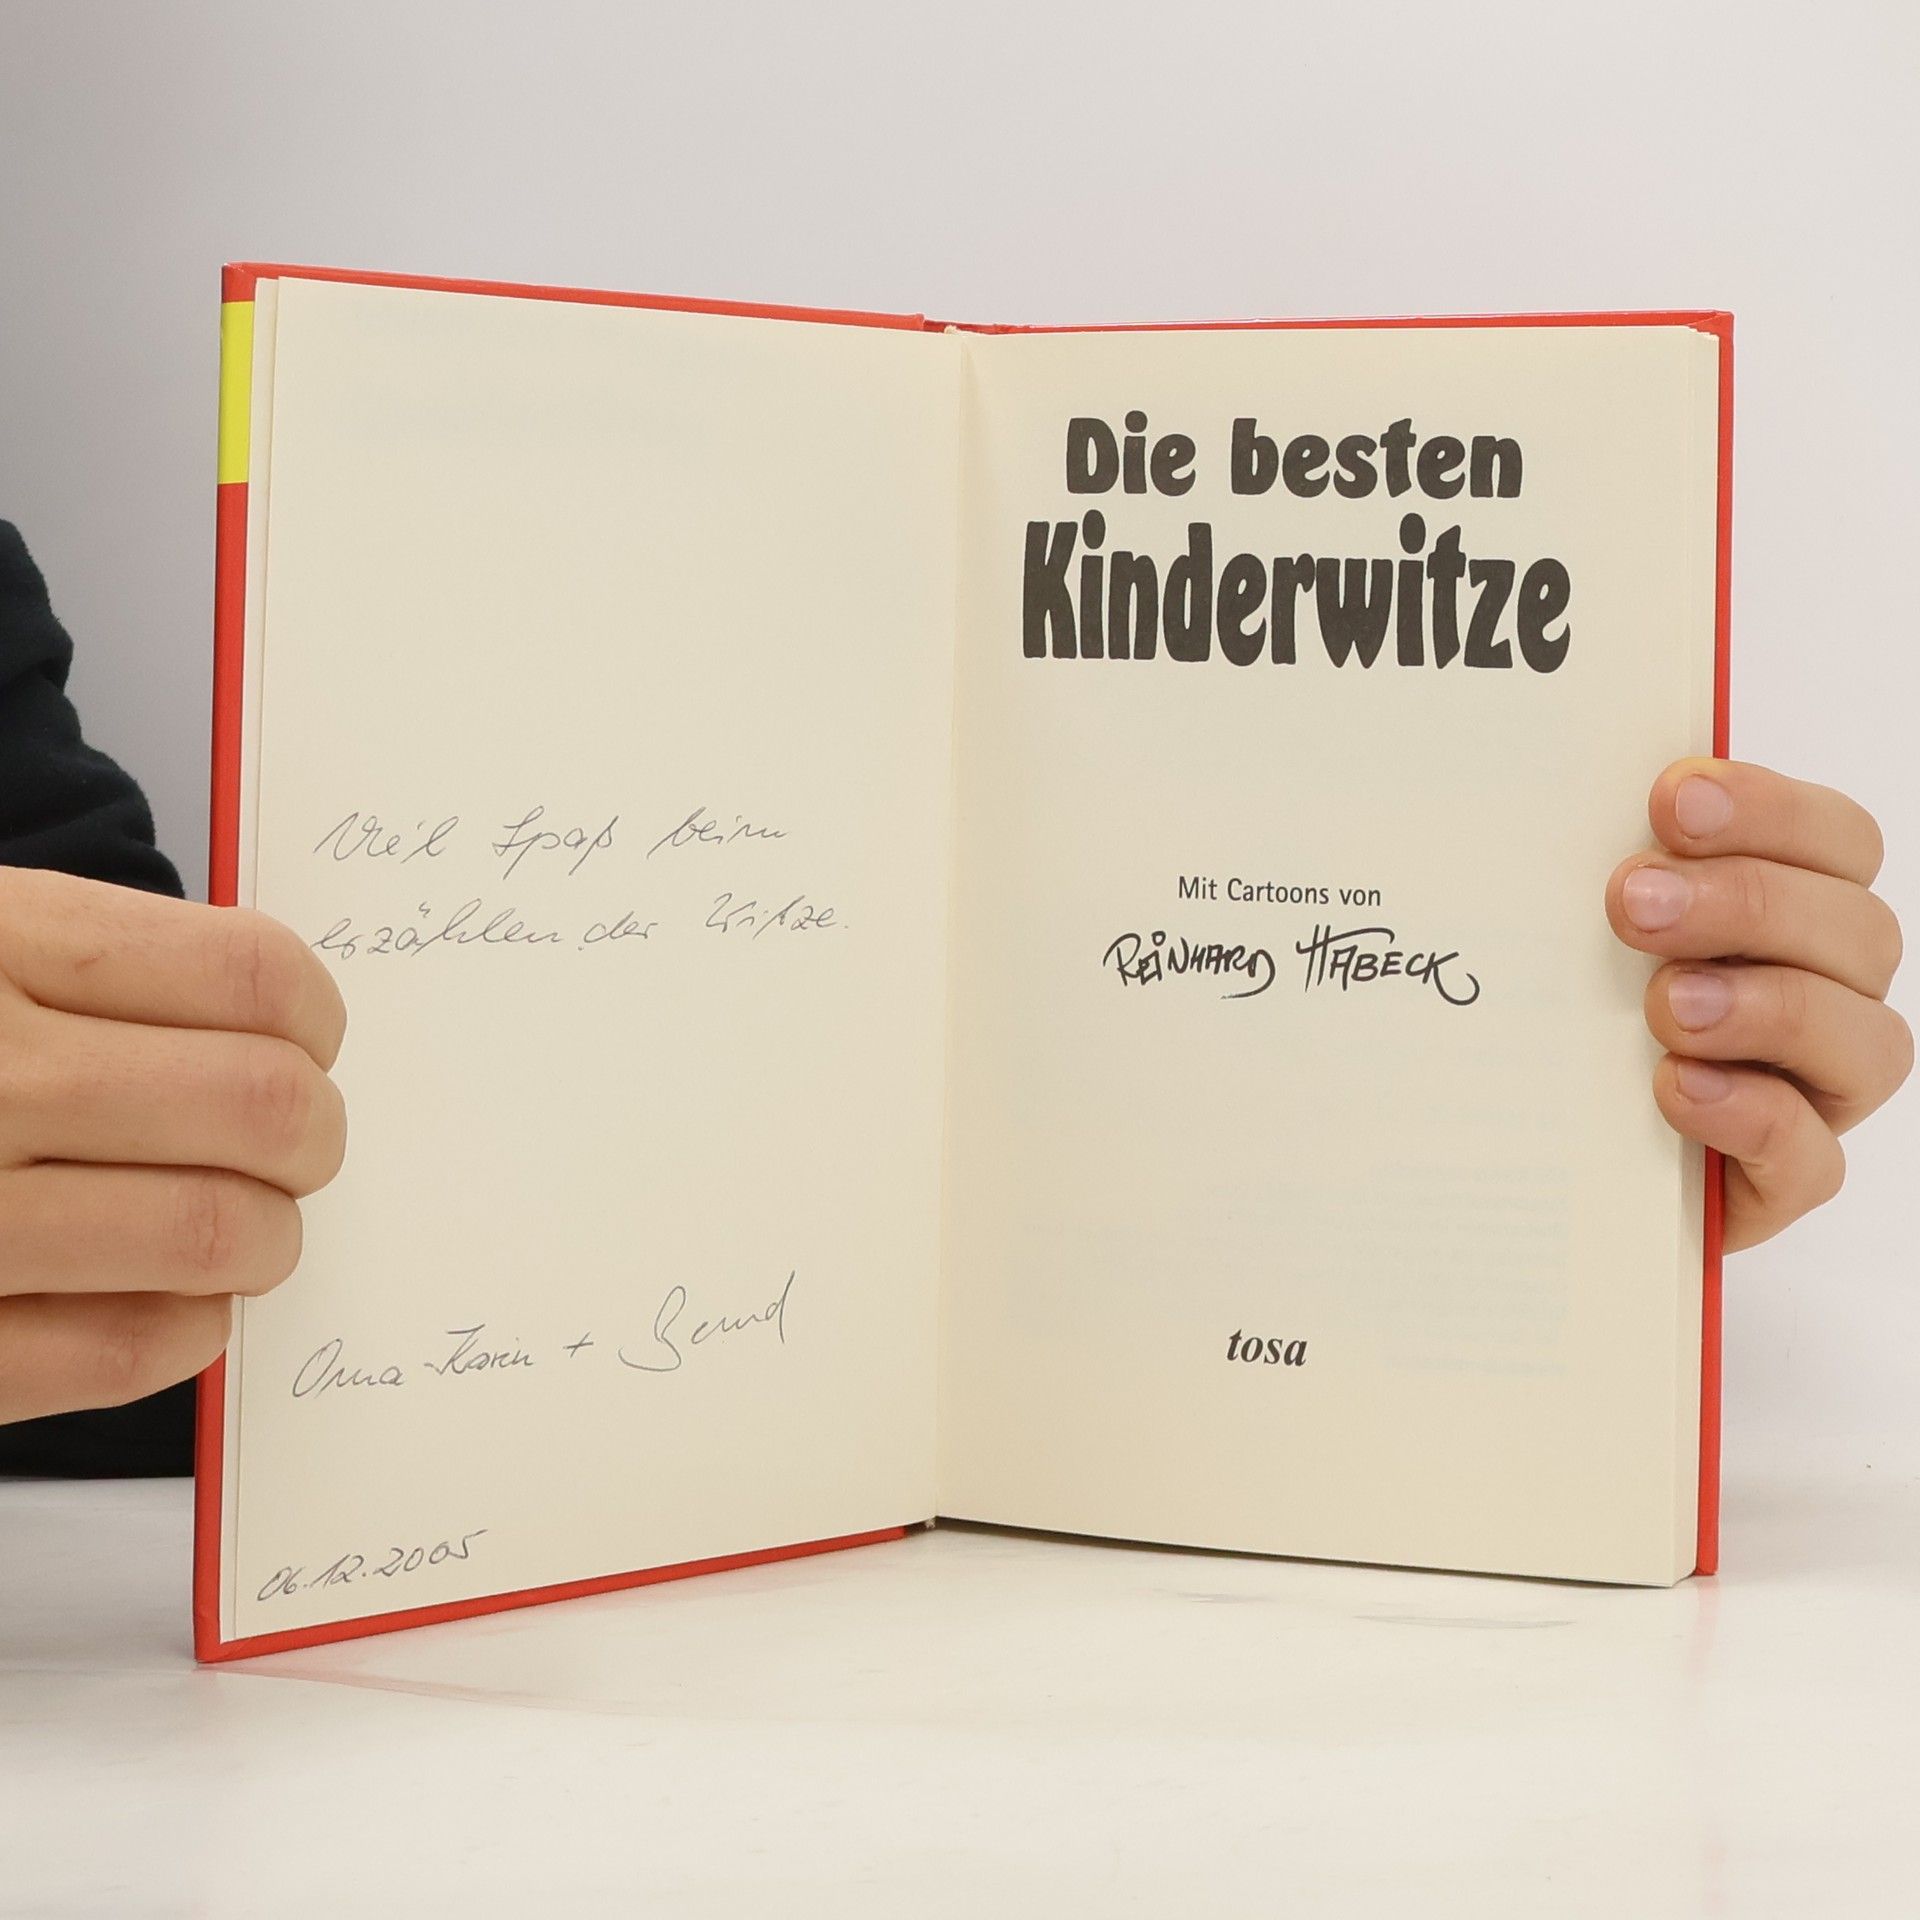 Viel Spaß beim
erzählen der Witze.
Oma Karin + Bernd
06.12.2005
Die besten
Kinderwitze
Mit Cartoons von
REINHARD HABECK
tosa